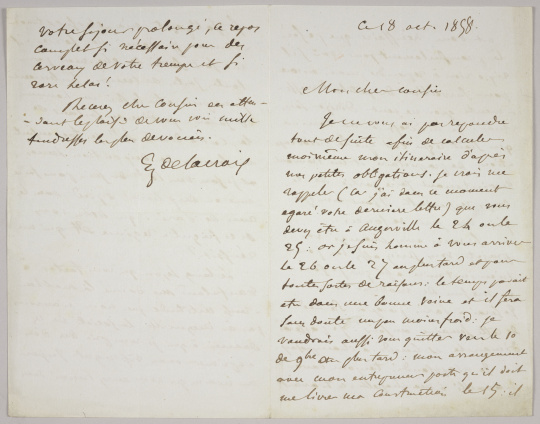 Ce 18 oct. 1858.
Mon cher cousin
Je ne vous ai pas répondu
tout de suite afin de calculer
moi même mon itinéraire d'après
mes petites obligations. je crois me
rappeler (car j'ai dans ce moment
égaré votre dernière lettre) que vous
devez être à Augerville le 24 ou le
25 : or je suis homme à vous arriver
le 26 ou le 27 au plus tard et pour
toutes sortes de raisons : le temps parait
être dans une bonne veine et il fera
sans doute un peu moins froid : je
voudrais aussi vous quitter vers le 10
de 9bre au plus tard : mon arrangement
avec mon entrepreneur porte qu'il doit
me livrer ma construction le 15 : il
votre séjour prolongé, ce repos
complet si nécessaire pour des
cerveaux de votre trempe et si
rare hélas !
Recevez cher Cousin en atten-
-dant le plaisir de vous voir mille
tendresses les plus dévouées.
Eg Delacroix